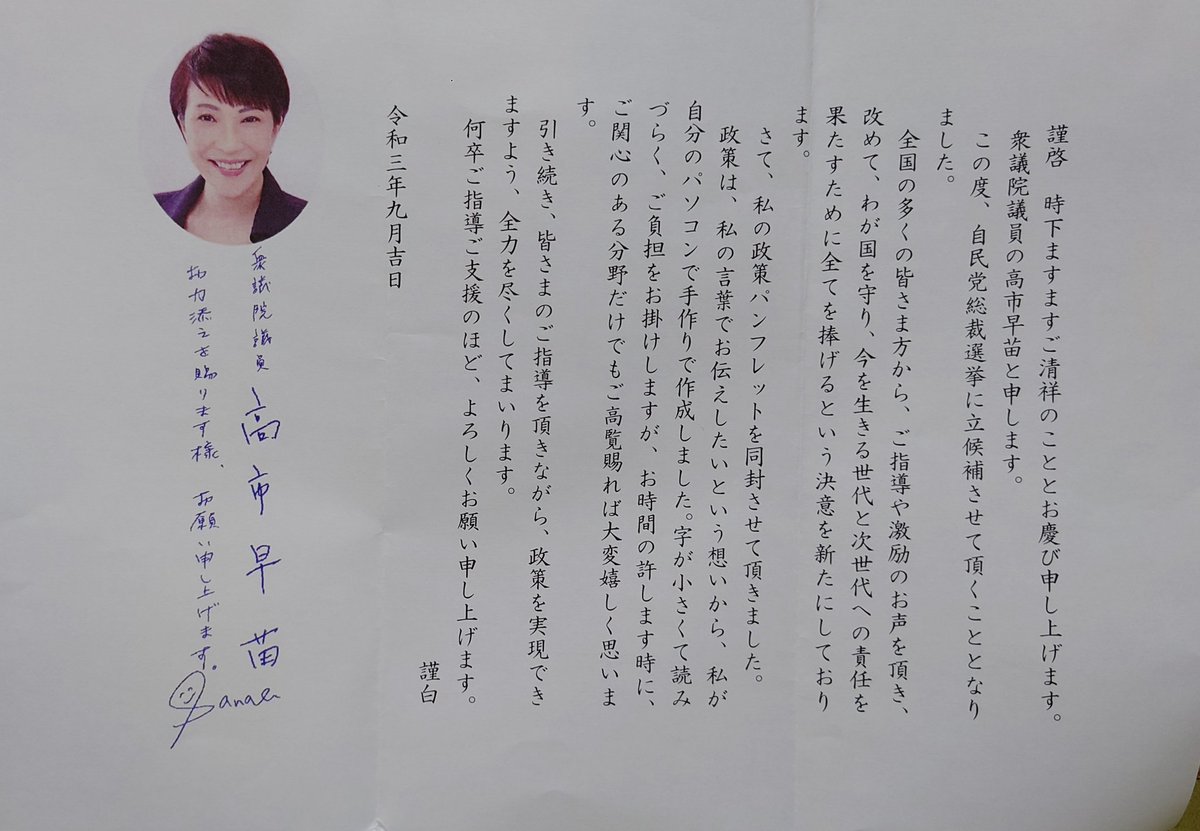 謹啓　時下ますますご清祥のこととお慶び申し上げます。
衆議院議員の高市早苗と申します。
この度、自民党総裁選挙に立候補させて頂くこととなり
ました。
全国の多くの皆さま方から、ご指導や激励のお声を頂き、
改めて、わが国を守り、今を生きる世代と次世代への責任を
果たすために全てを捧げるという決意を新たにしており
ます。
さて、私の政策パンフレットを同封させて頂きました。
政策は、私の言葉でお伝えしたいという想いから、私が
自分のパソコンで手作りで作成しました。字が小さくて読み
づらく、ご負担をお掛けしますが、お時間の許します時に、
ご関心のある分野だけでもご高覧賜れば大変嬉しく思いま
す。
引き続き、皆さまのご指導を頂きながら、政策を実現でき
ますよう、全力を尽くしてまいります。
何卒ご指導ご支援のほど、よろしくお願い申し上げます。
謹白
令和三年九月吉日
衆議院議員 高市早苗
お力添えを賜ります様、お願い申し上げます。
Sanae